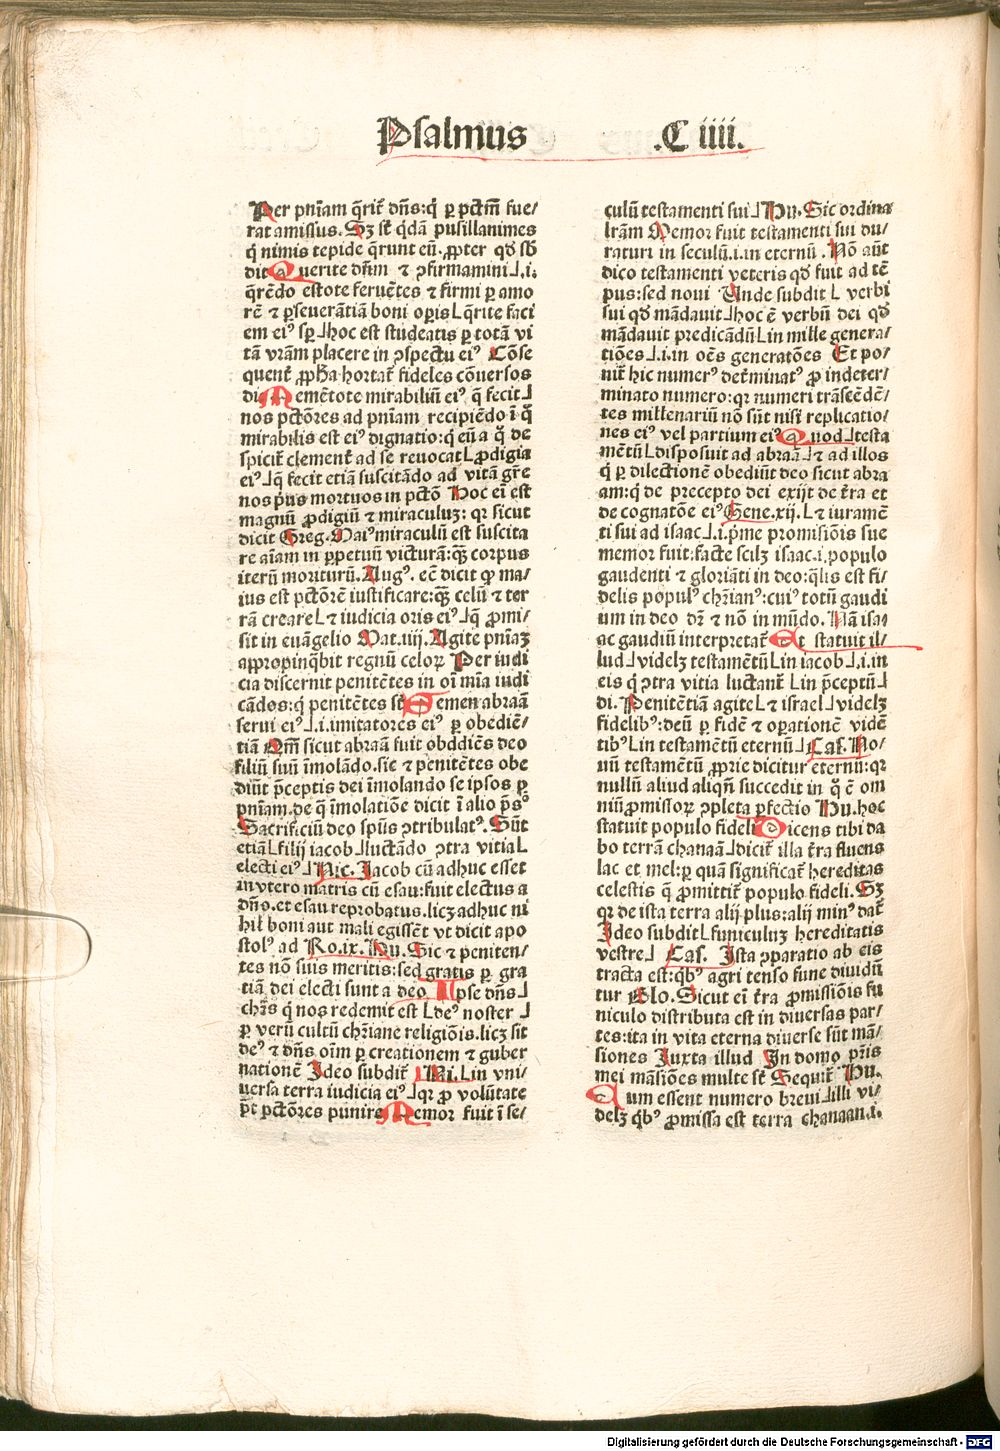 Psalmus .C iiii.
Per pn̄iam q̄rit̄ dn̄s:q̇ ꝑ pctm̄ fue/
rat amissus. Sꝫ st̄ q̇dā pusillanimes
q̇ nimis tepide q̄runt eū. ꝓpter qd̓ sb̄
dit Querite dn̄m ⁊ ꝯfirmamini⅃.i.
q̄rēdo estote feruētes ⁊ firmi ꝑ amo
rē ⁊ ꝑseuerātiam boni oꝑis⅂q̄rite faci
em ei⁹ sꝑ⅃hoc est studeatis ꝑ totā vi
tā vr̄am placere in ꝯspectu ei⁹ Cōse
quent̄ ꝓph̄a hortat̄ fideles cōuersos
di. Memētote mirabiliū ei⁹ q̄ fecit⅃
nos pctōres ad pn̄iam recipiēdo ī q̇
mirabilis est ei⁹ dignatio:q̇ eū a q̇ de
spicit̄ clement̄ ad se reuocat⅂ꝓdigia
ei⁹⅃q̄ fecit etiā suscitādo ad vitā gr̄e
nos pri̓us mortuos in pctō Hoc ei̅ est
magnū ꝓdigiū ⁊ miraculuꝫ: qꝛ sicut
dicit Greg. Mai⁹ miraculū est suscita
re aīam in ꝑpetuū victurā:qꝫ̄ corpus
iterū moriturū. Aug⁹. ecē dicit ꝙ ma/
ius est pctōrē iustificare:qꝫ̄ celū ⁊ ter
rā creare⅂⁊ iudicia oris ei⁹⅃q̄ ꝓmi/
sit in euāgelio Mat.iiij. Agite pn̄iaꝫ
appropinq̇bit regnū celoꝝ Per iudi
cia discernit penitētes in oī mīa iudi
cādos:q̇ penitētes st̄ Semen abraā
serui ei⁹⅃.i.imitatores ei⁹ ꝑ obediē/
tiā Qm̄ sicut abraā fuit obddiēs deo
filiū suū īmolādo.sic ⁊ penitētes obe
diūt p̄ceptis dei īmolando se ipsos ꝑ
pn̄iam.de q̄ īmolatiōe dicit ī alio ps̄º
Sacrificiū deo spūs ꝯtribulat⁹. Sūt
etiā⅂filij iacob⅃luctādo ꝯtra vitia⅂
electi ei⁹⅃Nic. Jacob cū adhuc esset
in vtero matris cū esau:fuit electus a
dn̄o.et esau reprobatus.licꝫ adhuc ni
hil boni aut mali egissēt vt dicit apo
stol⁹ ad Ro.ix. Hu. Sic ⁊ peniten/
tes nō suis meritis:sed gratis ꝑ gra
tiā dei electi sunt a deo Ipse dn̄s⅃
chrs̄ q̇ nos redemit est ⅂de⁹ noster⅃
ꝑ verū cultū chr̄iane religiōis.licꝫ sit
de⁹ ⁊ dn̄s oīm ꝑ creationem ⁊ guber
nationē Ideo subdit̄ Ni.⅂in vni/
uersa terra iudicia ei⁹⅃qꝛ ꝓ volūtate
pt̄ pctōres punire Memor fuit ī se/
culū testamenti sui⅃Hu. Sic ordina
lr̄am Memor fuit testamenti sui du/
raturi in seculū.i.in eternū. Nō aūt
dico testamenti veteris qd̓ fuit ad tē
pus:sed noui Unde subdit⅂verbi
sui qd̓ mādauit⅃hoc ē verbū dei qd̓
mādauit predicādū⅂in mille genera/
tiōes⅃.i.in oēs generatōes Et po/
nit̄ hic numer⁹ det̄minat⁹ ꝓ indeter/
minato numero:qꝛ numeri trāscēdē/
tes millenariū nō sūt nisi replicatio/
nes ei⁹ vel partium ei⁹ Quod⅃testa
mētū⅂disposuit ad abraā⅃⁊ ad illos
q̇ ꝑ dilectionē obediūt deo sicut abra
am:q̇ de precepto dei exijt de t̄ra et
de cognatōe ei⁹ Gene.xij.⅂⁊ iuramē
ti sui ad isaac⅃.i.pm̄e promisiōis sue
memor fuit:facte scilꝫ isaac.i.populo
gaudenti ⁊ gloriāti in deo:q̄lis est fi/
delis popul⁹ chr̄ian⁹:cui⁹ totū gaudi
um in deo dꝫ ⁊ nō in mūdo. Nā isa/
ac gaudiū interpretat̄ Et statuit il/
lud⅃videlꝫ testamētū⅂in iacob⅃.i.in
eis q̇ ꝯtra vitia luctant̄⅂in p̄ceptū⅃
di. Penitētiam agite⅂⁊ israel⅃videlꝫ
fidelib⁹:deū ꝑ fidē ⁊ oꝑationē vidē
tib⁹⅂in testamētū eternū⅃Cas. No/
uū testamētū ꝓprie dicitur eternū:qꝛ
nullū aliud aliqn̄ succedit in q̇ ē om
niū ꝓmissoꝝ ꝯpleta ꝑfectio Hu.hoc
statuit populo fideli Dicens tibi da
bo terrā chanaā⅃dicit̄ illa t̄ra fluens
lac et mel:ꝑ quā significat̄ hereditas
celestis q̄ ꝓmittit̄ populo fideli. Sꝫ
qꝛ de ista terra alij plus:alij min⁹ dat̄
Ideo subdit⅂funiculuꝫ hereditatis
vestre⅃ Cas. Ista ꝯparatio ab eis
tracta est:qb⁹ agri tenso fune diuidū
tur Glo. Sicut ei̅ t̄ra ꝓmissiōis fu
niculo distributa est in diuersas par/
tes:ita in vita eterna diuerse sūt mā/
siones Juxta illud In domo pr̄is
mei māsiōes multe st̄ Sequit̄ Hu.
Cum essent numero breui⅃illi vi/
delꝫ qb⁹ ꝓmissa est terra chanaan.i.
Digitalisierung gefördert durch die Deutsche Forschungsgemeinschaft - DFG